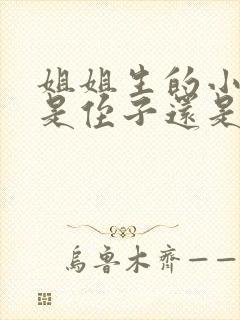 姐姐生的小
是侄子還是
烏魯木齊——